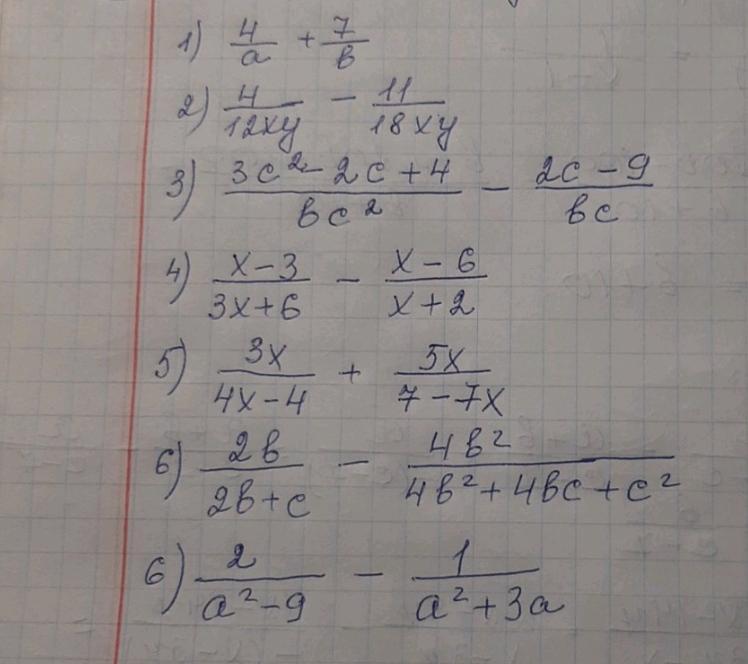 1) 4/a + 7/b
2) 4/12xy - 11/18xy
3) (3c² - 2c + 4)/bc² - (2c - 9)/bc
4) (x - 3)/(3x + 6) - (x - 6)/(x + 2)
5) 3x/(4x - 4) + 5x/(7 - 7x)
6) 2b/(2b + c) - 4b²/(4b² + 4bc + c²)
6) 2/(a² - 9) - 1/(a² + 3a)